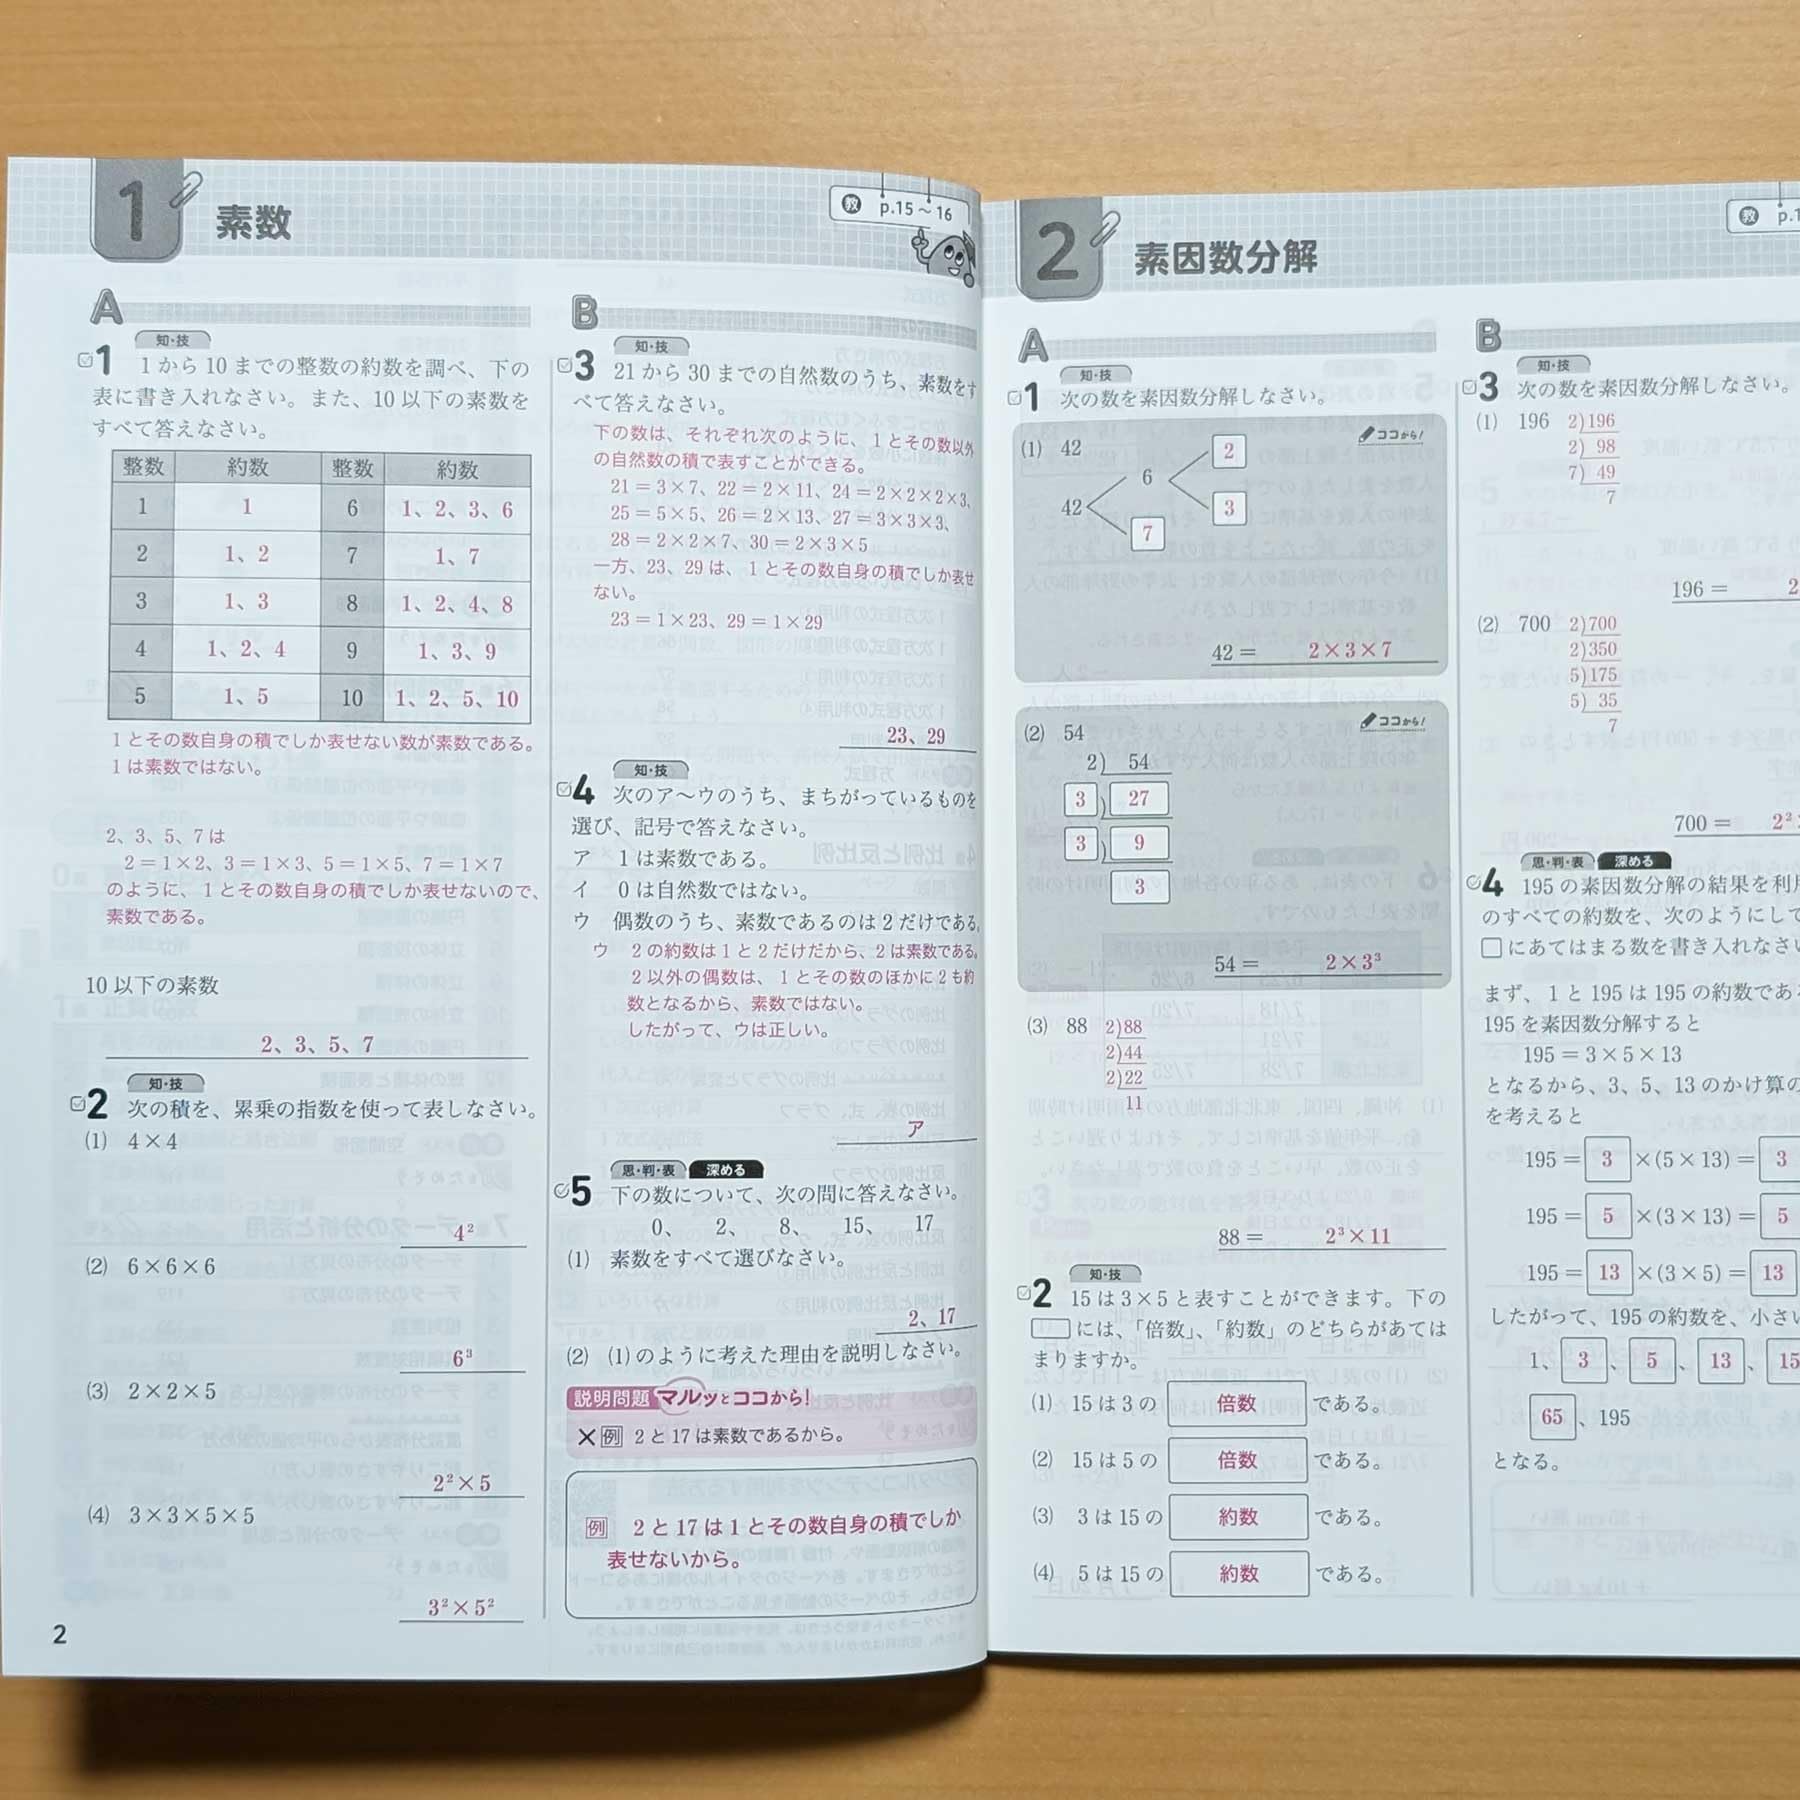 1 素数
教 p.15～16
A
知・技
1 1から10までの整数の約数を調べ、下の
表に書き入れなさい。また、10以下の素数を
すべて答えなさい。
整数 約数 整数 約数
1 1 6 1、2、3、6
2 1、2 7 1、7
3 1、3 8 1、2、4、8
4 1、2、4 9 1、3、9
5 1、5 10 1、2、5、10
1とその数自身の積でしか表せない数が素数である。
1は素数ではない。
2、3、5、7は
2＝1×2、3＝1×3、5＝1×5、7＝1×7
のように、1とその数自身の積でしか表せないので、
素数である。
10以下の素数
2、3、5、7
知・技
2 次の積を、累乗の指数を使って表しなさい。
(1) 4×4
4²
(2) 6×6×6
6³
(3) 2×2×5
2²×5
(4) 3×3×5×5
3²×5²
2
B
知・技
3 21から30までの自然数のうち、素数をす
べて答えなさい。
下の数は、それぞれ次のように、1とその数以外
の自然数の積で表すことができる。
21＝3×7、22＝2×11、24＝2×2×2×3、
25＝5×5、26＝2×13、27＝3×3×3、
28＝2×2×7、30＝2×3×5
一方、23、29は、1とその数自身の積でしか表せ
ない。
23＝1×23、29＝1×29
23、29
知・技
4 次のア～ウのうち、まちがっているものを
選び、記号で答えなさい。
ア 1は素数である。
イ 0は自然数ではない。
ウ 偶数のうち、素数であるのは2だけである。
ウ 2の約数は1と2だけだから、2は素数である。
2以外の偶数は、1とその数のほかに2も約
数となるから、素数ではない。
したがって、ウは正しい。
ア
思・判・表 深める
5 下の数について、次の問に答えなさい。
0、 2、 8、 15、 17
(1) 素数をすべて選びなさい。
2、17
(2) (1)のように考えた理由を説明しなさい。
説明問題 マルッとココから!
×例 2と17は素数であるから。
例 2と17は1とその数自身の積でしか
表せないから。
2 素因数分解
教 p.1
A
知・技
1 次の数を素因数分解しなさい。
(1) 42 ココから!
2
6
42 3
7
42＝ 2×3×7
(2) 54 ココから!
2) 54
3) 27
3) 9
3
54＝ 2×3³
(3) 88 2)88
2)44
2)22
11
88＝ 2³×11
知・技
2 15は3×5と表すことができます。下の
には、「倍数」、「約数」のどちらがあては
まりますか。
(1) 15は3の 倍数 である。
(2) 15は5の 倍数 である。
(3) 3は15の 約数 である。
(4) 5は15の 約数 である。
B
知・技
3 次の数を素因数分解しなさい。
(1) 196 2)196
2) 98
7) 49
7
196＝ 2
(2) 700 2)700
2)350
5)175
5) 35
7
700＝ 2²
思・判・表 深める
4 195の素因数分解の結果を利
のすべての約数を、次のようにして
□にあてはまる数を書き入れなさい
まず、1と195は195の約数であ
195を素因数分解すると
195＝3×5×13
となるから、3、5、13のかけ算の
を考えると
195＝ 3 ×(5×13)＝ 3
195＝ 5 ×(3×13)＝ 5
195＝ 13 ×(3×5)＝ 13
したがって、195の約数を、小さい
1、 3 、 5 、 13 、 15
65 、195
となる。